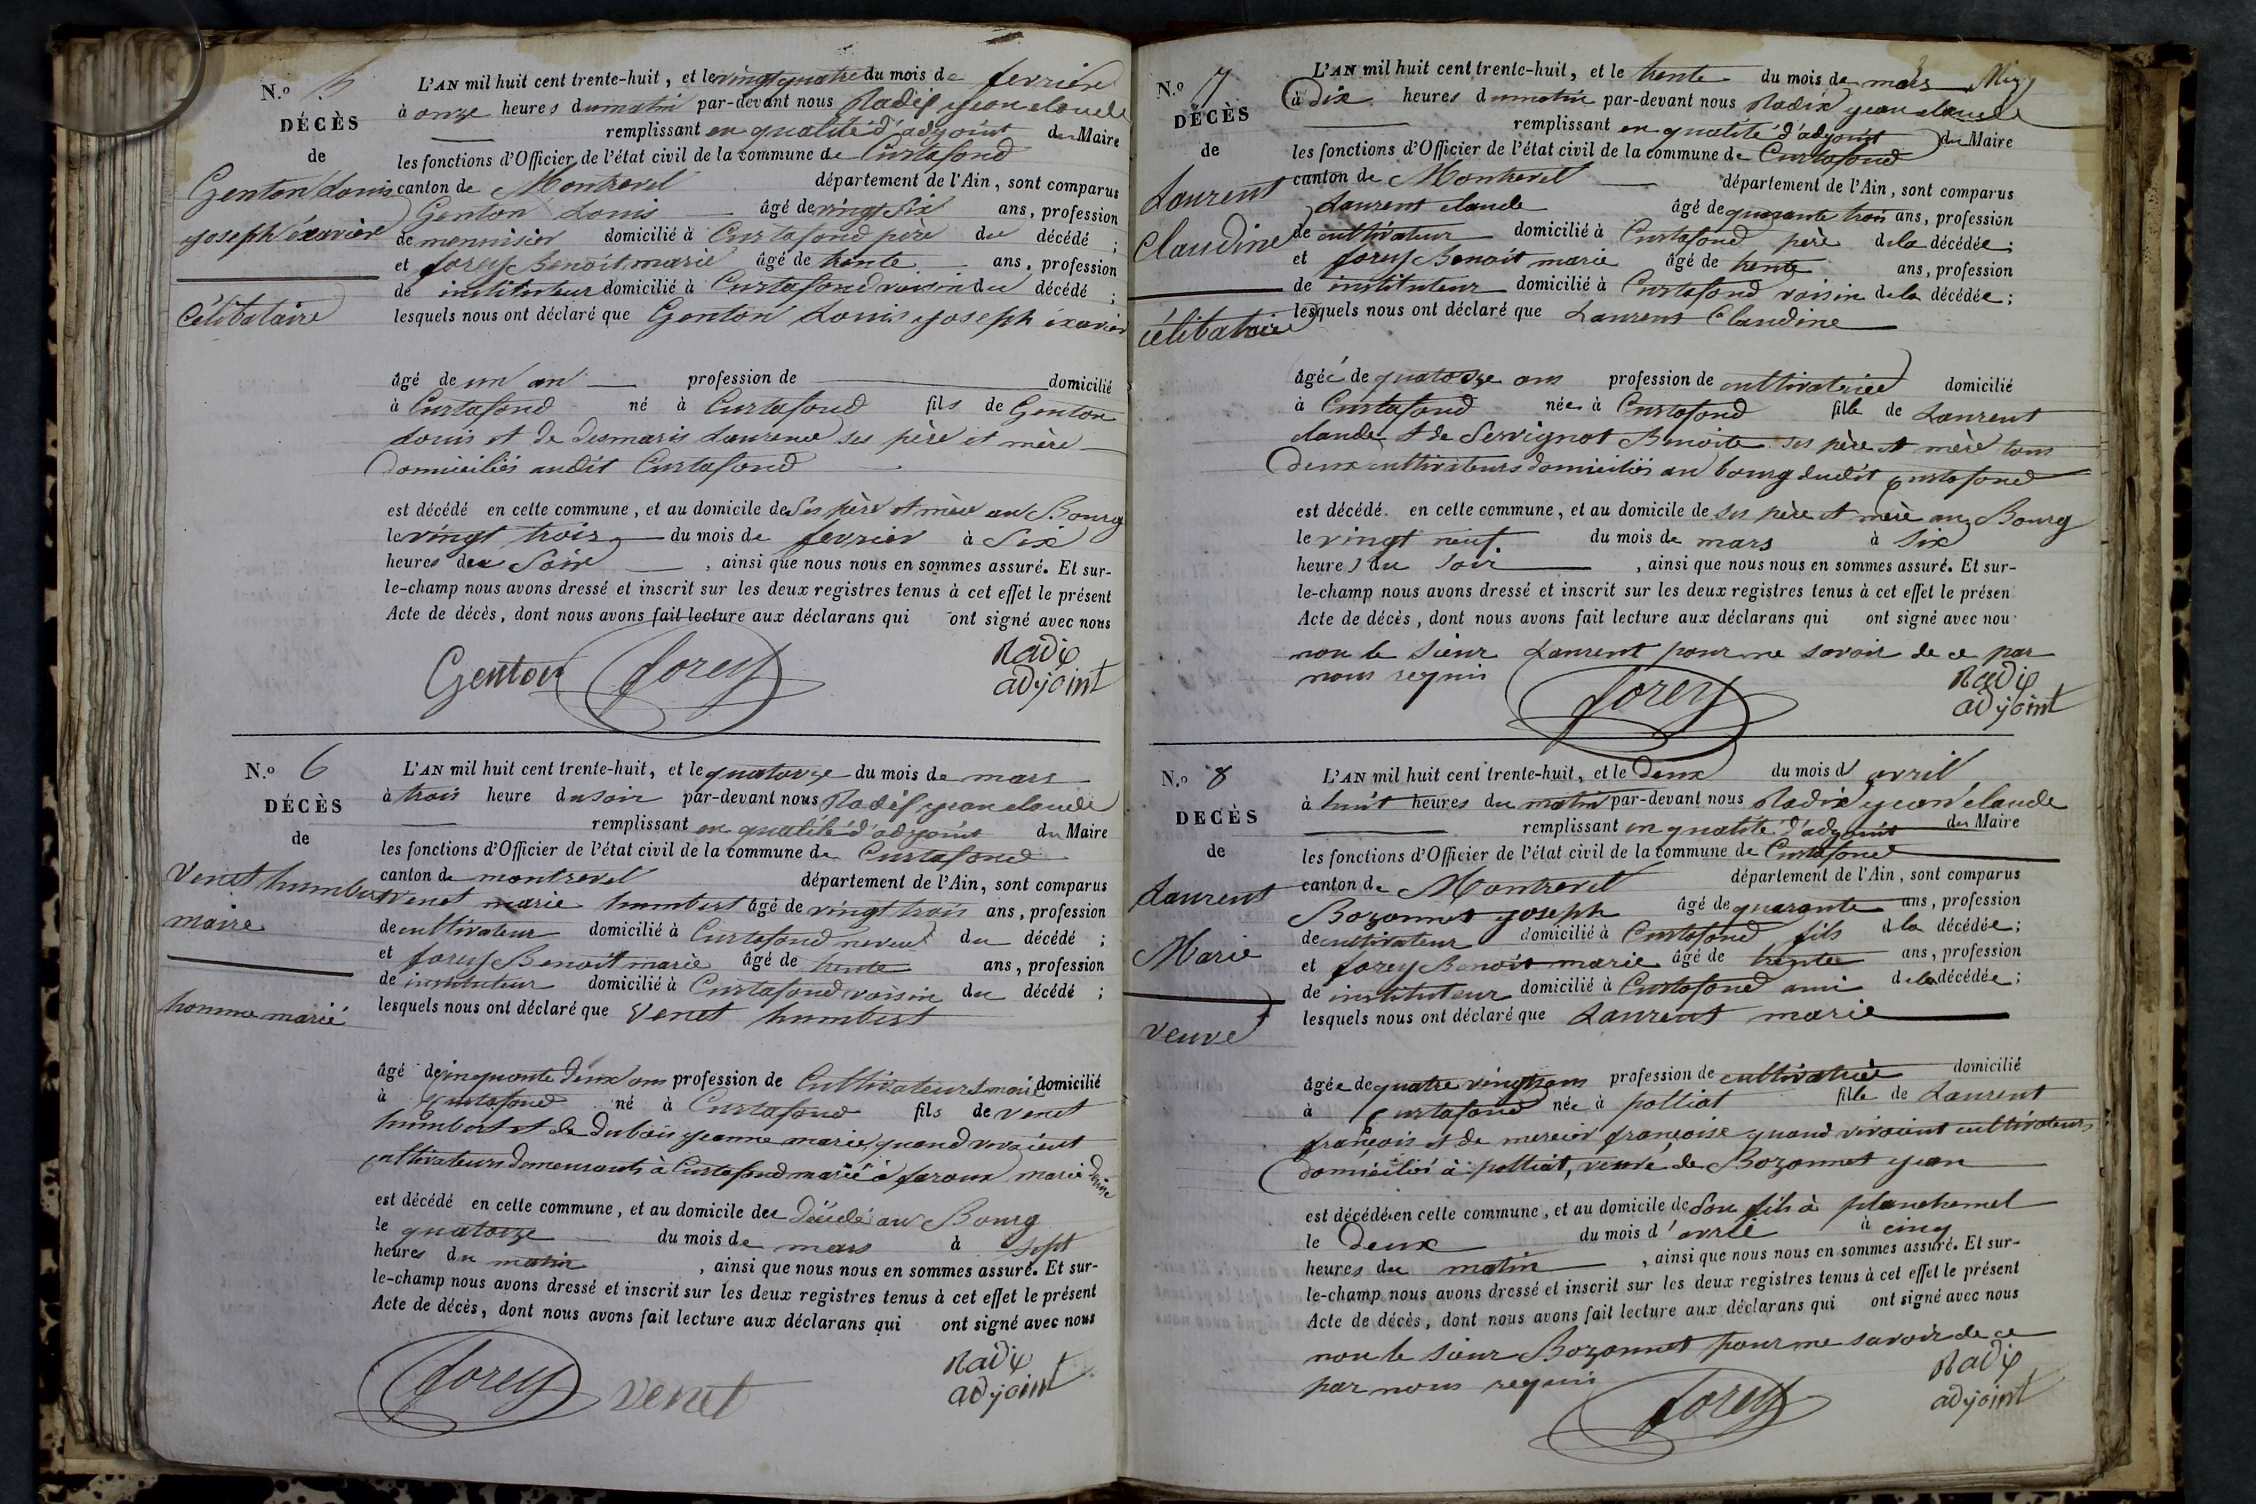 N.o 5
DÉCÈS
de
Genton Louis
joseph éxavièr
célibataire
L'AN mil huit cent trente-huit, et le vingt quatre du mois de fevrièr
à onze heures du matin par-devant nous Radix jean claude
remplissant en qualité d'adjoint du Maire
les fonctions d'Officier de l'état civil de la commune de Curtafond
canton de Montrevel département de l'Ain, sont comparus
Genton Louis âgé de vingt six ans, profession
de menuisier domicilié à Curtafond père du décédé ;
et forey Benoit marie âgé de trente ans, profession
de instituteur domicilié à Curtafond voisin du décédé ;
lesquels nous ont déclaré que Genton Louis joseph éxavièr
âgé de un an profession de domicilié
à Curtafond né à Curtafond fils de Genton
Louis et de desmaris Laurence ses père et mère
domiciliés audit Curtafond
est décédé en cette commune, et au domicile de Ses père et mère au Bourg
le vingt trois du mois de fevrier à Six
heures du Soir , ainsi que nous nous en sommes assuré. Et sur-
le-champ nous avons dressé et inscrit sur les deux registres tenus à cet effet le présent
Acte de décès, dont nous avons fait lecture aux déclarans qui ont signé avec nous
Genton forey Radix
adjoint
N.o 6
DÉCÈS
de
Venet humbert
maire
homme marié
L'AN mil huit cent trente-huit, et le quatorze du mois de mars
à trois heure du soir par-devant nous Radix jean claude
remplissant en qualité d'adjoint du Maire
les fonctions d'Officier de l'état civil de la commune de Curtafond
canton de montrevel département de l'Ain, sont comparus
Venet marie humbert âgé de vingt trois ans, profession
de cultivateur domicilié à Curtafond neveu du décédé ;
et forey Benoit marie âgé de trente ans, profession
de instituteur domicilié à Curtafond voisin du décédé ;
lesquels nous ont déclaré que Venet humbert
âgé de cinquante deux ans profession de Cultivateur domicilié
à Curtafond né à Curtafond fils de venet
humbert et de dubois jeanne marie, quand vivaient
cultivateurs demeurants à Curtafond marié à faroux marie
est décédé en cette commune, et au domicile du décédé au Bourg
le quatorze du mois de mars à sept
heures du matin , ainsi que nous nous en sommes assuré. Et sur-
le-champ nous avons dressé et inscrit sur les deux registres tenus à cet effet le présent
Acte de décès, dont nous avons fait lecture aux déclarans qui ont signé avec nous
forey venet Radix
adjoint
N.o 7
DÉCÈS
de
Laurent
Claudine
célibataire
L'AN mil huit cent trente-huit, et le trente du mois de mars
à dix heures du matin par-devant nous Radix jean claude
remplissant en qualité d'adjoint du Maire
les fonctions d'Officier de l'état civil de la commune de Curtafond
canton de Montrevel département de l'Ain, sont comparus
Laurent claude âgé de quarante trois ans, profession
de cultivateur domicilié à Curtafond père de la décédée ;
et forey Benoit marie âgé de trente ans, profession
de instituteur domicilié à Curtafond voisin de la décédée ;
lesquels nous ont déclaré que Laurent Claudine
âgée de quatorze ans profession de cultivatrice domicilié
à Curtafond née à Curtafond fille de Laurent
claude et de Servignat Benoite ses père et mère tous
deux cultivateurs domiciliés au bourg dudit Curtafond
est décédé en cette commune, et au domicile de ses père et mère au Bourg
le vingt neuf du mois de mars à six
heures du soir , ainsi que nous nous en sommes assuré. Et sur-
le-champ nous avons dressé et inscrit sur les deux registres tenus à cet effet le présen
Acte de décès, dont nous avons fait lecture aux déclarans qui ont signé avec nou
non le sieur Laurent pour ne savoir de ce par
nous requis
forey Radix
adjoint
N.o 8
DECÈS
de
Laurent
Marie
veuve
L'AN mil huit cent trente-huit, et le deux du mois d'avril
à huit heures du matin par-devant nous Radix jean claude
remplissant en qualité d'adjoint du Maire
les fonctions d'Officier de l'état civil de la commune de Curtafond
canton de Montrevel département de l'Ain, sont comparus
Bozonnet joseph âgé de quarante ans, profession
de cultivateur domicilié à Curtafond fils de la décédée ;
et forey Benoit marie âgé de trente ans, profession
de instituteur domicilié à Curtafond ami de la décédée ;
lesquels nous ont déclaré que Laurent marie
âgée de quatre vingts ans profession de cultivatrice domicilié
à Curtafond née à polliat fille de Laurent
françois et de mercier françoise quand vivaient cultivateurs
domiciliés à polliat, veuve de Bozonnet jean
est décédée en cette commune, et au domicile de Son fils à planchemel
le deux du mois d'avril à cinq
heures du matin , ainsi que nous nous en sommes assuré. Et sur-
le-champ nous avons dressé et inscrit sur les deux registres tenus à cet effet le présent
Acte de décès, dont nous avons fait lecture aux déclarans qui ont signé avec nous
non le sieur Bozonnet pour ne savoir de ce
par nous requis
forey Radix
adjoint